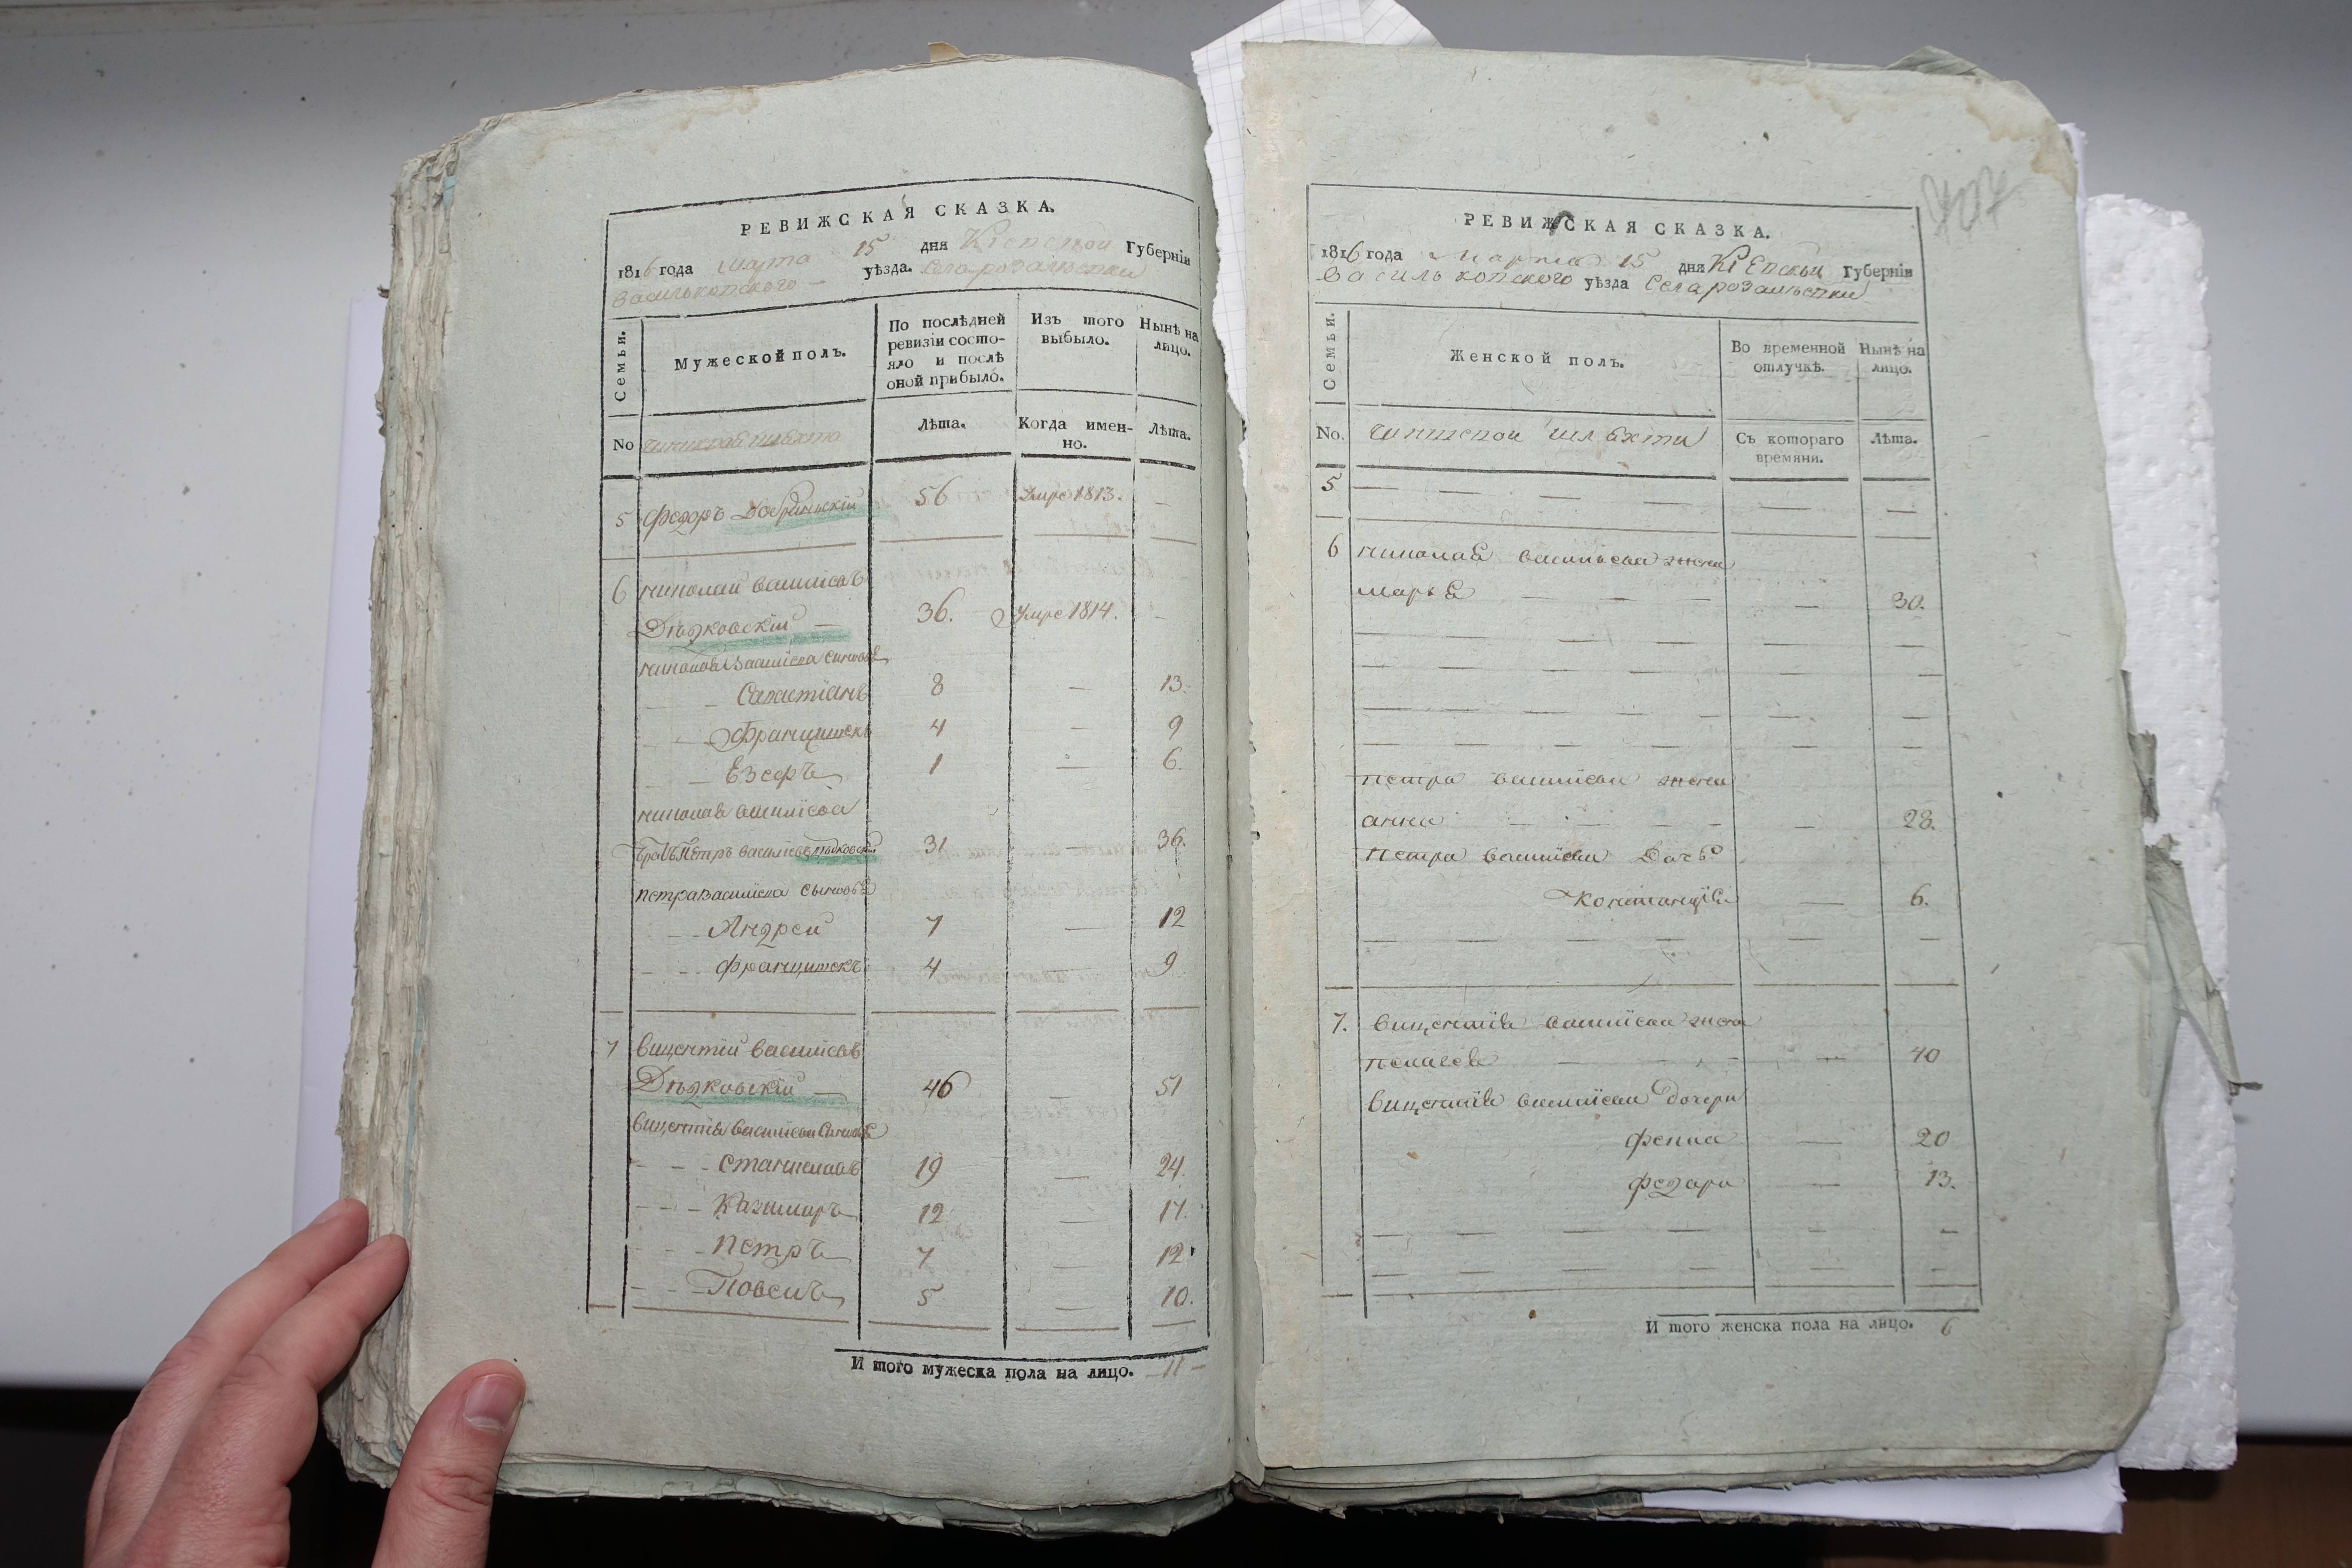 РЕВИЖСКАЯ СКАЗКА.
1816 года Марта 15 дня Кіевской Губерніи
Васильковского уѣзда. Села
Семьи.
Мужеской полъ.
По послѣдней
ревизіи состо-
яло и послѣ
оной прибыло.
Изъ того
выбыло.
Нынѣ на
лицо.
No
Лѣта.
Когда имен-
но.
Лѣта.
5 Федоръ 56 Умре 1813. —
6 николай василіевъ
Дѣдковскій — 36. Умре 1814. -
николая василіева синовѣ
8 — 13.
Францишекъ 4 — 9
Езефъ 1 — 6.
николая василіева
братъ Петръ василіевъ 31 — 36.
петра василіева сыновѣ
Андрей 7 — 12
францишекъ 4 — 9
7 вицентій василіевъ
Дѣдковскій — 46 — 51
вицентія василіева синовѣ
станиславъ 19 — 24.
Казимиръ 12 — 17.
петръ 7 — 12
5 — 10.
И того мужеска пола на лицо. 11 —
РЕВИЖСКАЯ СКАЗКА.
1816 года Марта 15 дня Кіевской Губерніи
Васильковского уѣзда Села
Семьи.
Женской полъ.
Во временной
отлучкѣ.
Нынѣ на
лицо.
No.
чиншевой шляхти
Съ котораго
времяни.
Лѣта.
5 — — — — — —
6 николая василіева жена
марья — — — — 30.
петра василіева жена
анна — — — — 28.
петра василіева Дочь
— 6.
7. вицентія василіева жена
— 40
вицентія василіева дочери
— 20
федора — 13.
И того женска пола на лицо. 6